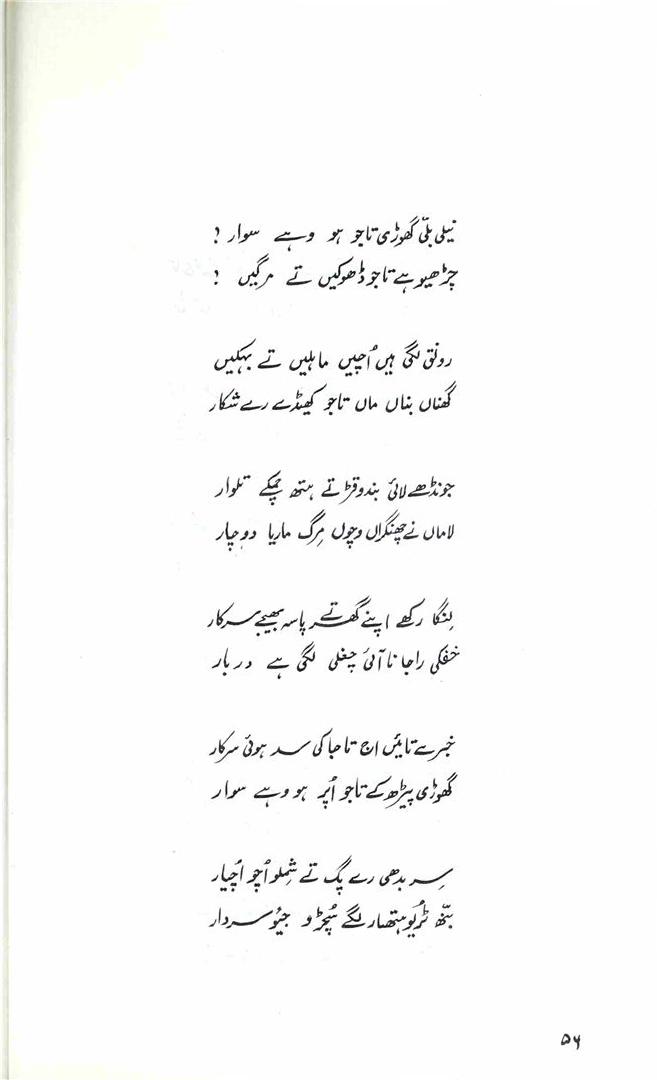 نیلی بلّی گھوڑی تاجو ہو وہے سوار ؟
چڑھیو ہے تاجو ڈھوکیں تے مرگیں ؟
رونق لگی ہیں اُچیں ماہلیں تے بہکیں
گھناں بناں ماں تاجو کھیڈے رے شکار
جونڈھے لائی بندوقڑتے ہتھ چمکے تلوار
لاماں نے چھنگراں وچوں مرگ ماریا دو چار
لِنگا رکھے اپنے گھرتے پاسہ بھیجے سرکار
خفگی راجا نا آئی چغلی لگی ہے دربار
خبرے تائیں اج تاجا کی سد ہوئی سرکار
گھوڑی پیڑھ کے تاجو اُپر ہو وہے سوار
سِر بدھی رے پگ تے شِملو اُچو اُچیار
بنّھ ٹریو ہتھیار لگے سُچڑو جیُو سردار
۵۶